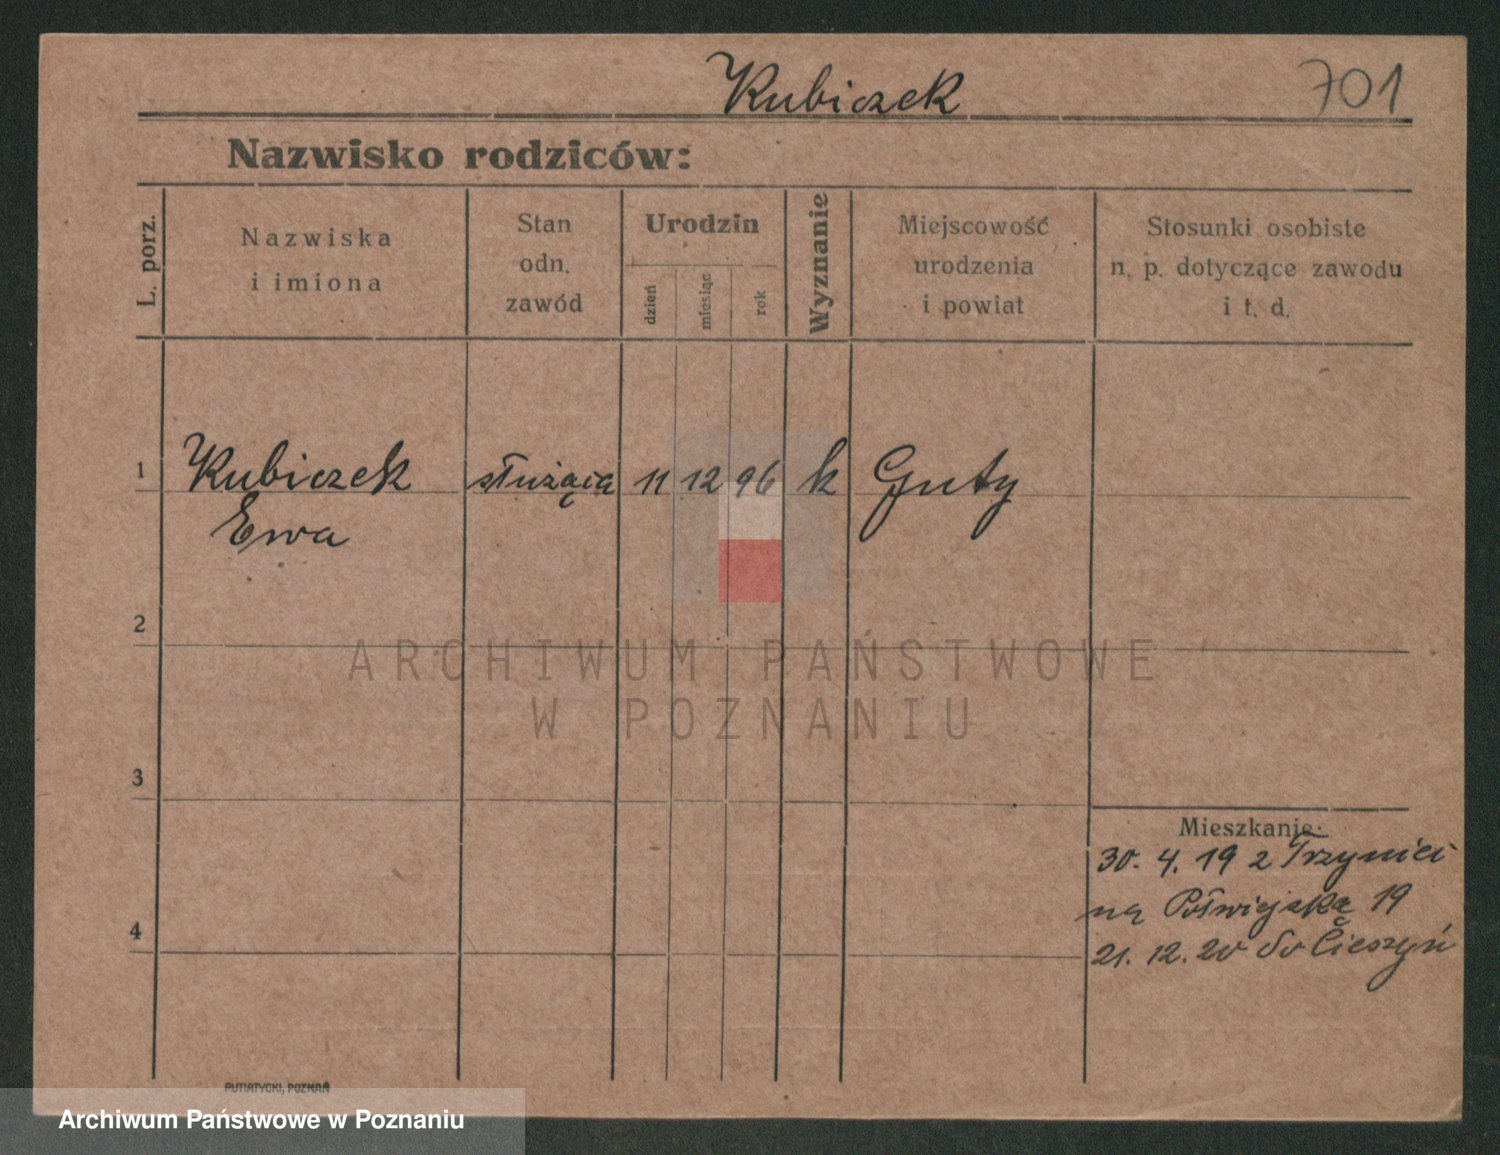 Kubiczek 701
Nazwisko rodziców:
L. porz.
Nazwiska
i imiona
Stan
odn.
zawód
Urodzin
dzień
miesiąc
rok
Wyznanie
Miejscowość
urodzenia
i powiat
Stosunki osobiste
n. p. dotyczące zawodu
i t. d.
1 Kubiczek służąca 11 12 96 k Guty
Ewa
2
ARCHIWUM PAŃSTWOWE
W POZNANIU
3
Mieszkanie:
30. 4. 19 z
na Półwiejską 19
4
21. 12. 20 do Cieszyń
PUTIATYCKI, POZNAŃ
Archiwum Państwowe w Poznaniu